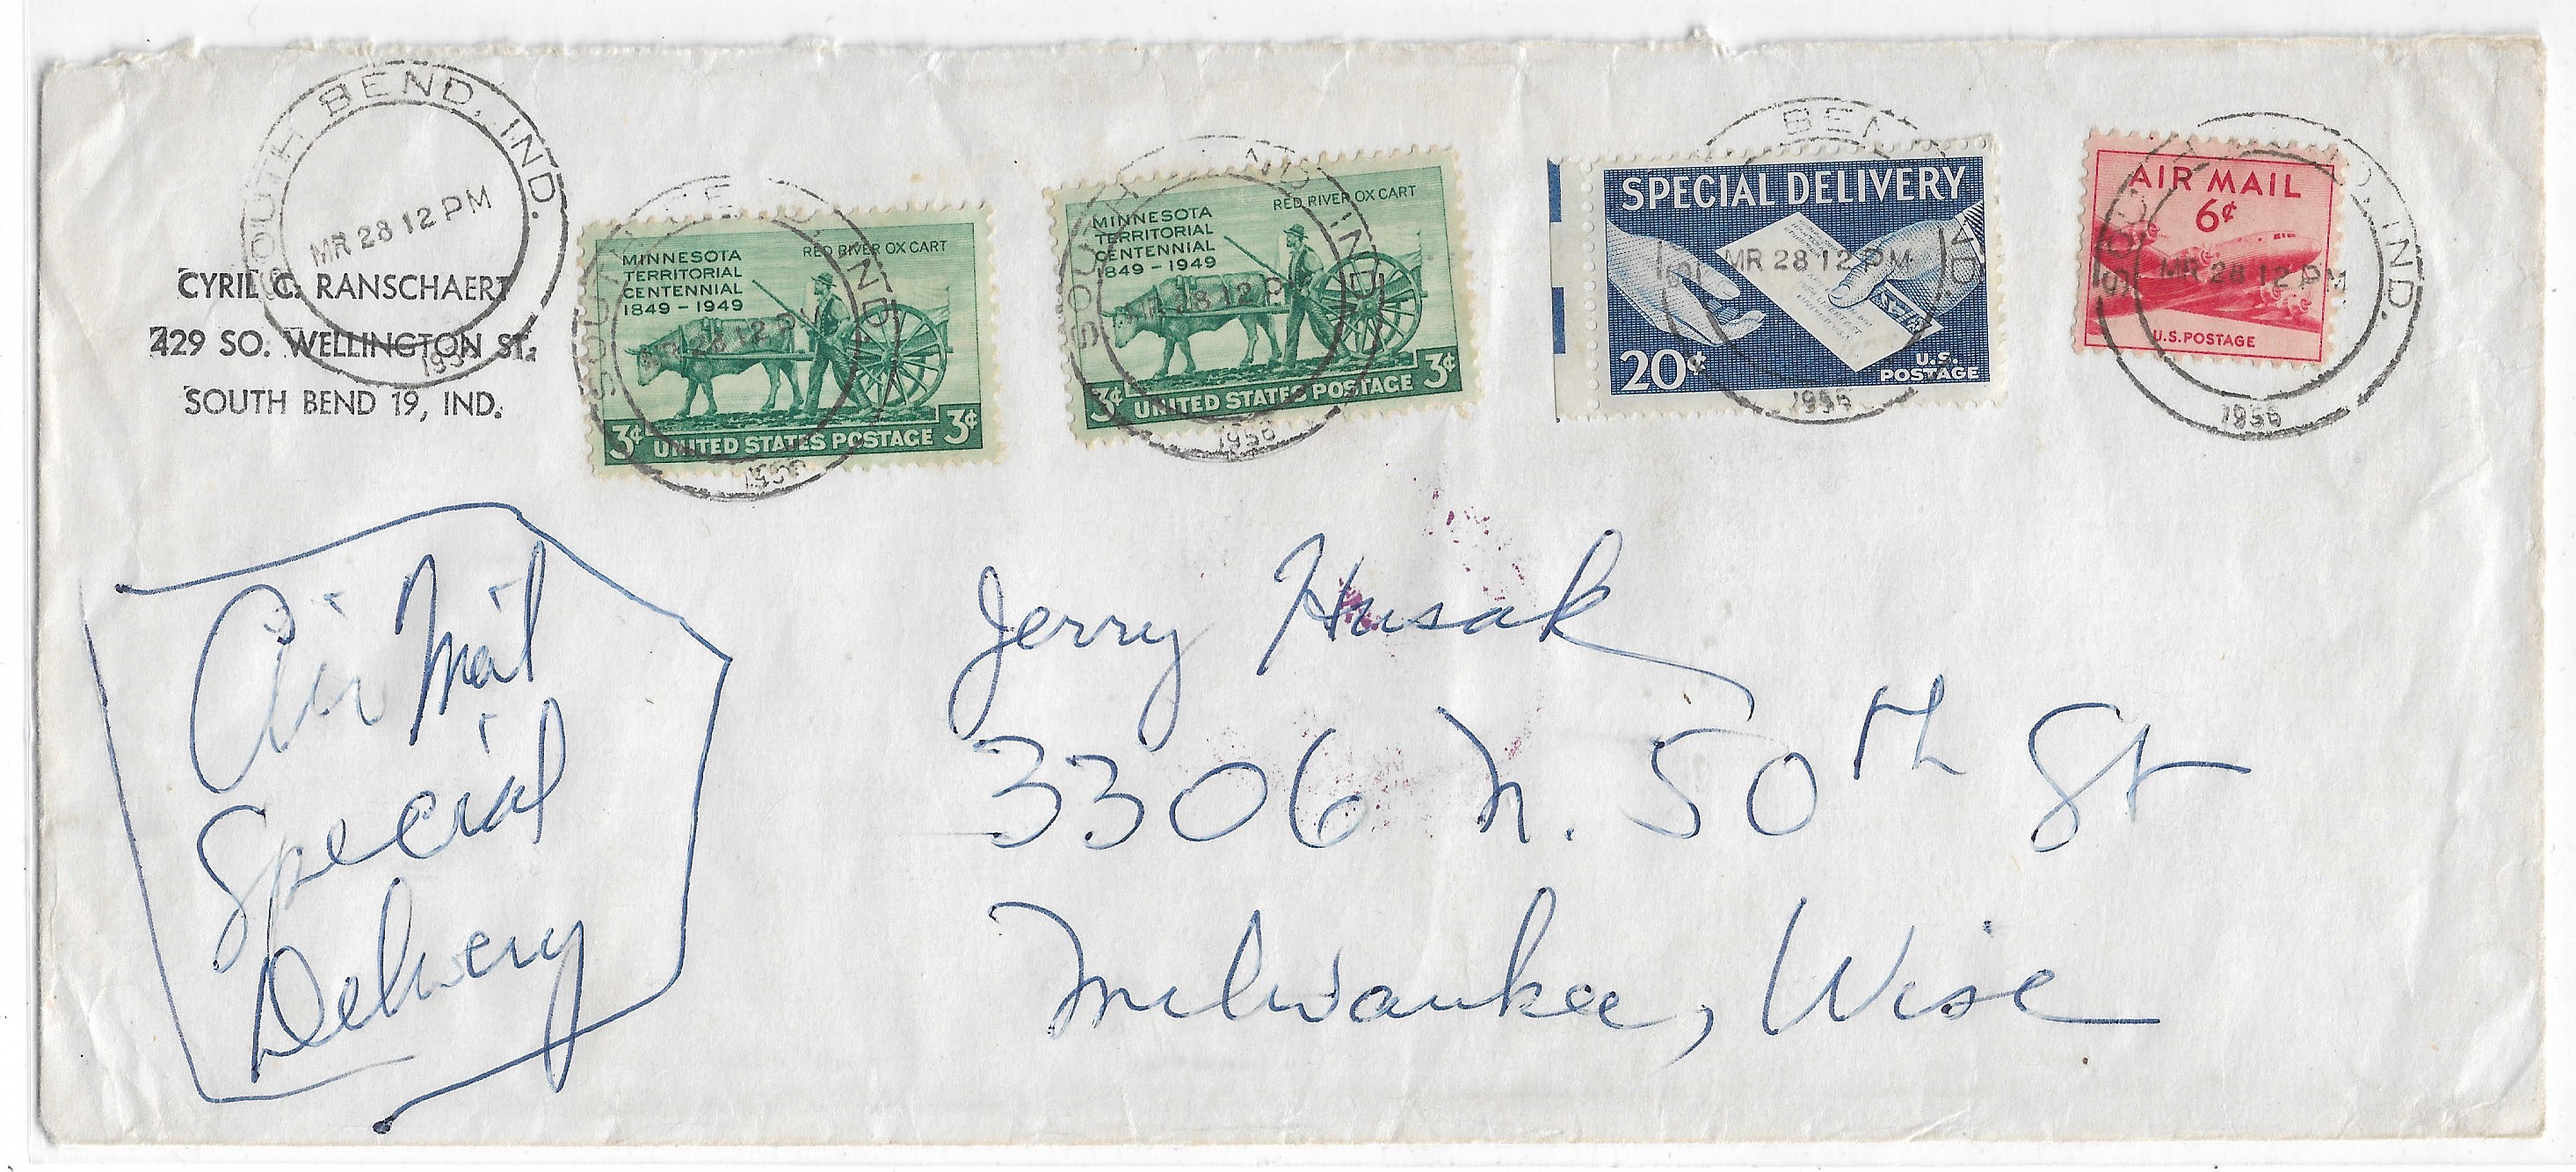 SOUTH BEND, IND.
MR 28 12 PM
1956
CYRIL C. RANSCHAERT
429 SO. WELLINGTON ST.
SOUTH BEND 19, IND.
MINNESOTA
TERRITORIAL
CENTENNIAL
1849 – 1949
RED RIVER OX CART
3¢ UNITED STATES POSTAGE 3¢
SOUTH BEND, IND.
MR 28 12 PM
1956
MINNESOTA
TERRITORIAL
CENTENNIAL
1849 – 1949
RED RIVER OX CART
3¢ UNITED STATES POSTAGE 3¢
SOUTH BEND, IND.
MR 28 12 PM
1956
SPECIAL DELIVERY
20¢
U.S.
POSTAGE
BEN
MR 28 12 PM
1956
AIR MAIL
6¢
U.S. POSTAGE
SOUTH BEND, IND.
MR 28 12 PM
1956
Air Mail
Special
Delivery
Jerry Husak
3306 N. 50th St
Milwaukee, Wisc